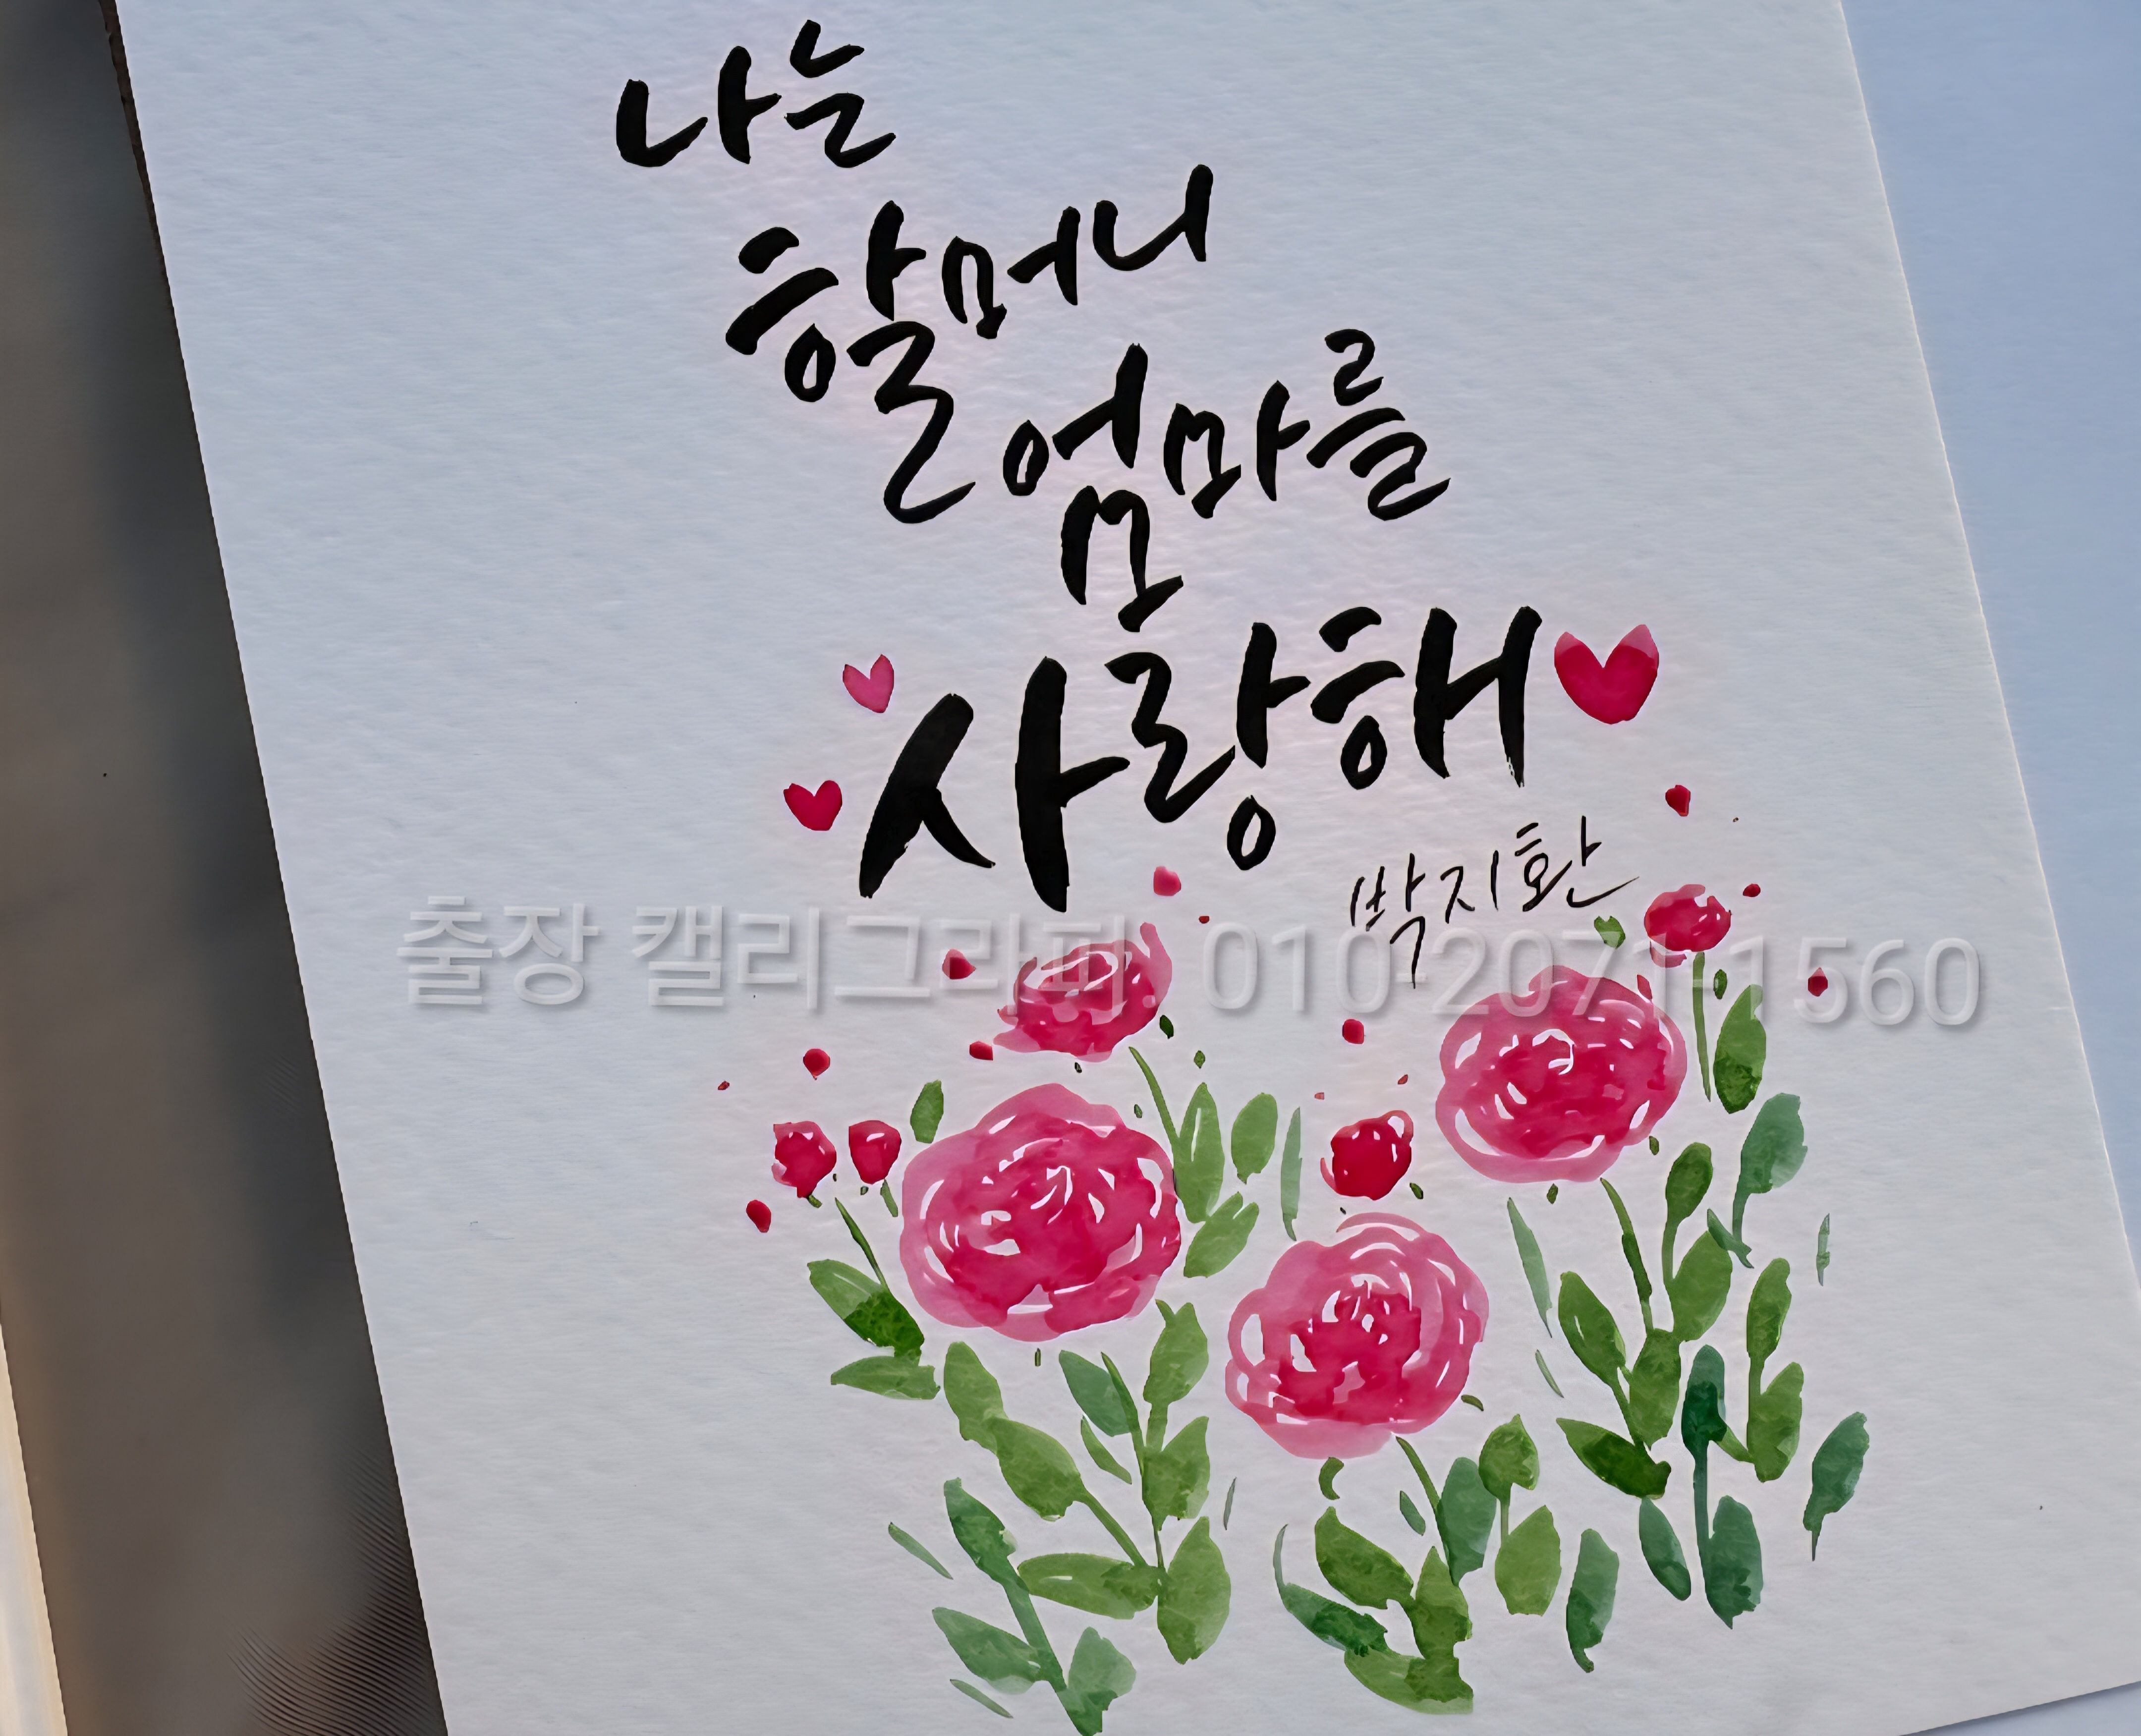 나는
할머니
엄마를
사랑해
박지환
출장 캘리그라피: 010-2071-1560